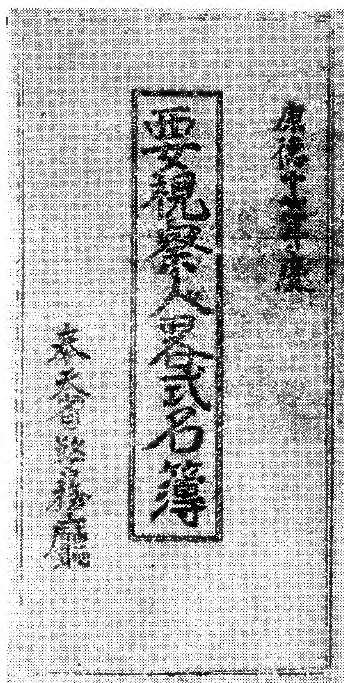 康德十一年度
要視察人畧式名簿
奉天省警務廳